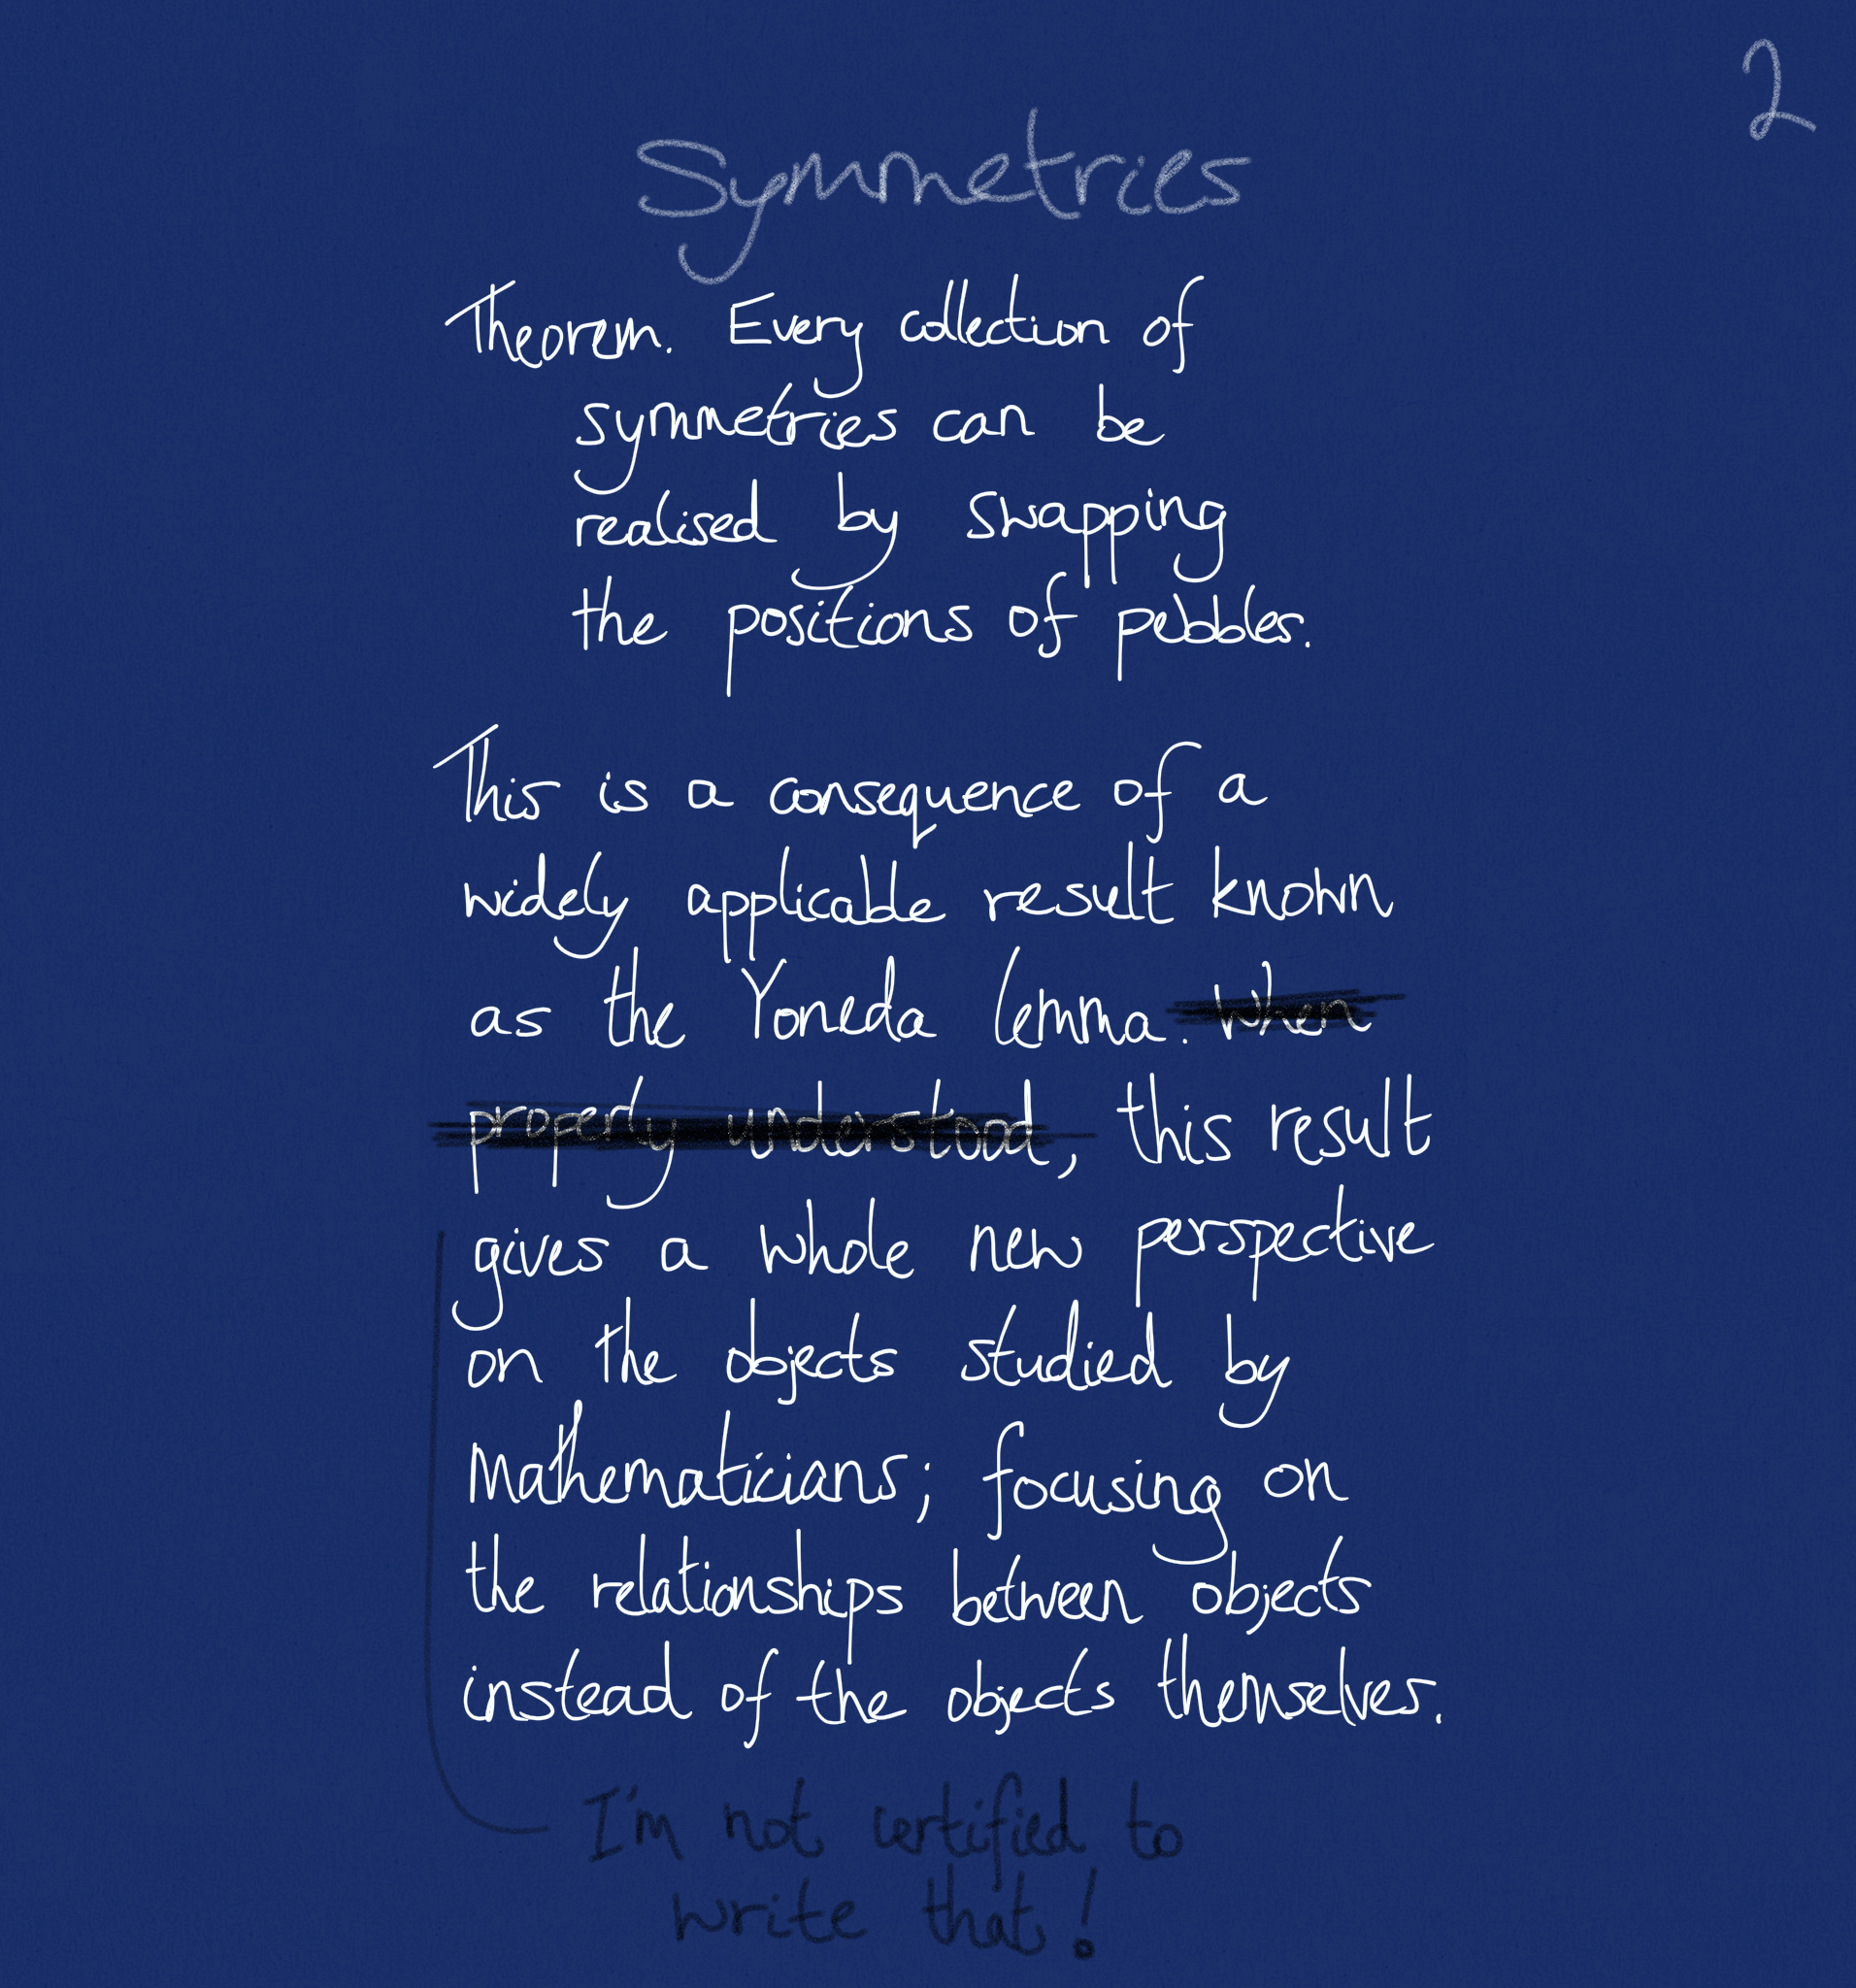 2
Symmetries
Theorem. Every collection of
symmetries can be
realised by swapping
the positions of pebbles.
This is a consequence of a
widely applicable result known
as the Yoneda lemma. When
properly understood, this result
gives a whole new perspective
on the objects studied by
Mathematicians; focusing on
the relationships between objects
instead of the objects themselves.
I'm not certified to
write that!